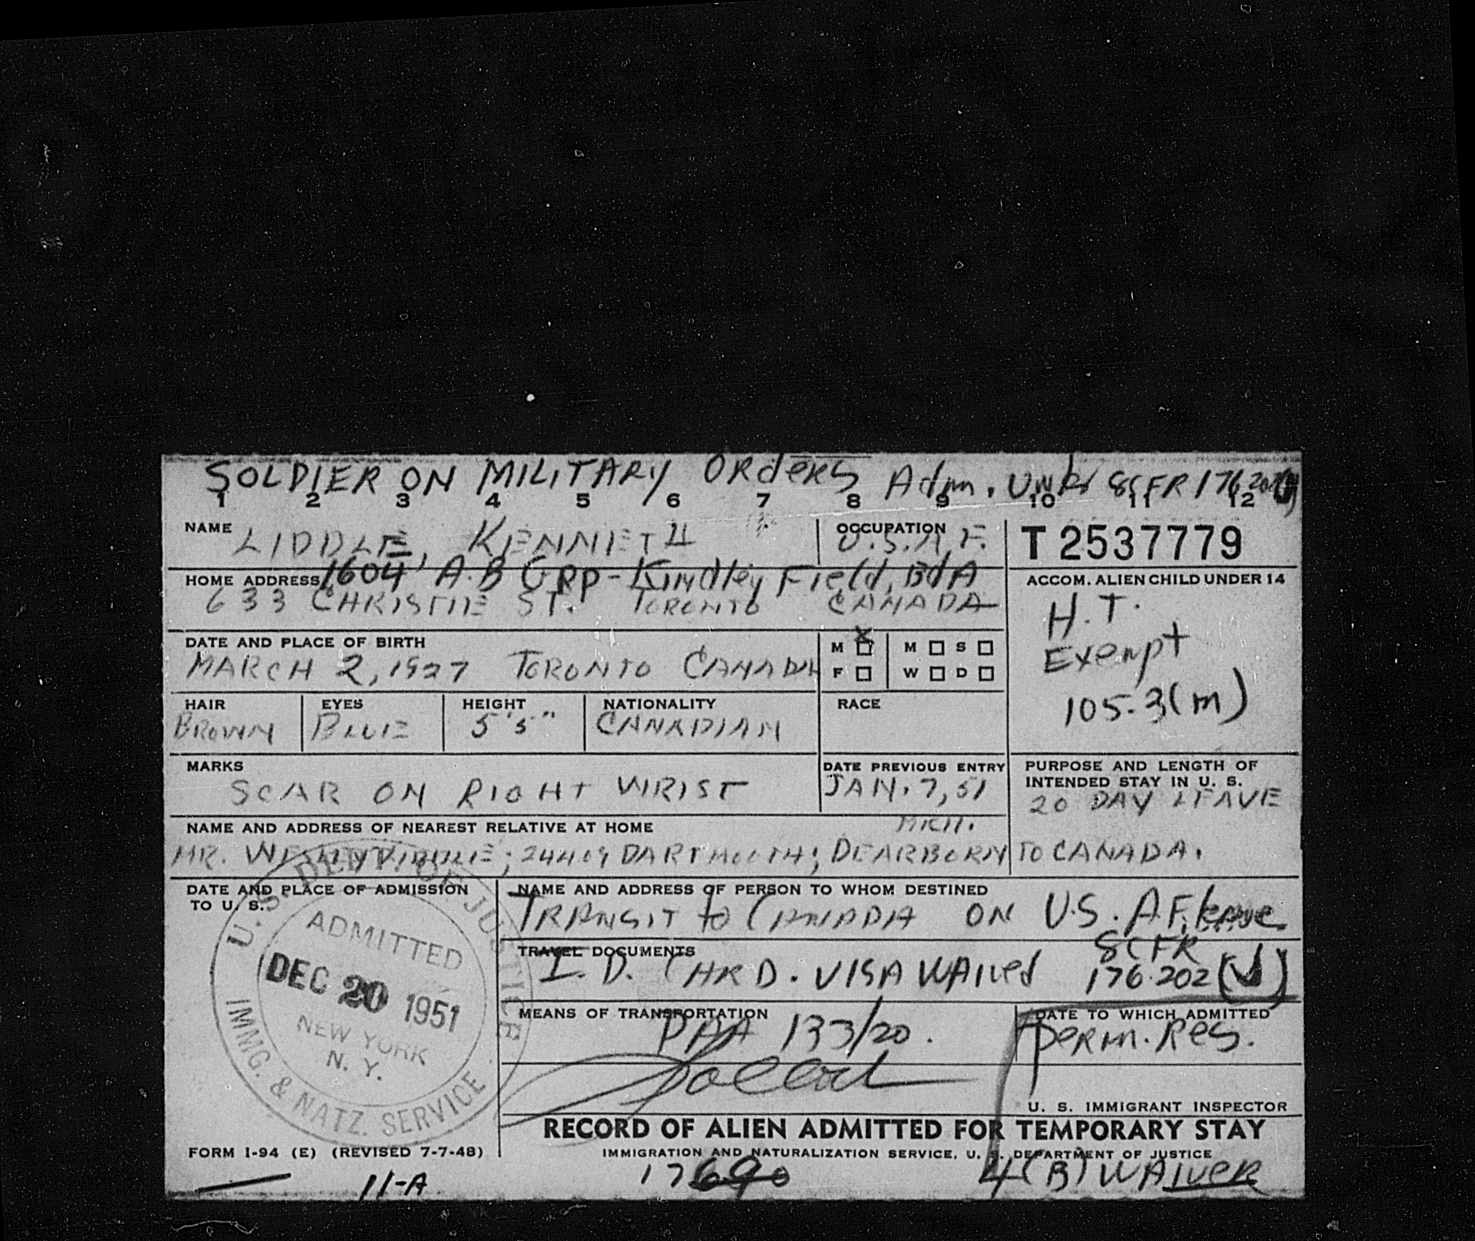 SOLDIER ON MILITARY ORdERS Adm. UNdR 8CFR 176
1 2 3 4 5 6 7 8 9 10 11 12
NAME LIDDLE, KENNETH
OCCUPATION U.S.A.F.
T 2537779
HOME ADDRESS 1604' A.B GPP- Kindley Field, BdA
633 CHRISTIE ST. TORONTO CANADA
ACCOM. ALIEN CHILD UNDER 14
H.T.
Exempt
105.3(m)
DATE AND PLACE OF BIRTH
MARCH 2, 1927 TORONTO CANADA
M X M S
F W D
HAIR EYES HEIGHT NATIONALITY RACE
BROWN BLUE 5'5" CANADIAN
MARKS
SCAR ON RIGHT WRIST
DATE PREVIOUS ENTRY
JAN. 7, 51
PURPOSE AND LENGTH OF
INTENDED STAY IN U. S.
20 DAY LEAVE
TO CANADA.
NAME AND ADDRESS OF NEAREST RELATIVE AT HOME
MICH.
MR. 24409 DARTMOUTH; DEARBORN
DATE AND PLACE OF ADMISSION
TO U. S.
U. S. DEPT. OF JUSTICE
ADMITTED
DEC 20 1951
NEW YORK
N. Y.
IMMG. & NATZ. SERVICE
NAME AND ADDRESS OF PERSON TO WHOM DESTINED
TRANSIT to CANADA ON U.S.A.F. leave
TRAVEL DOCUMENTS
8CFR
I.D. CARD. VISA WAIVed 176.202
MEANS OF TRANSPORTATION
PAA 133/20.
DATE TO WHICH ADMITTED
PERM. Res.
U. S. IMMIGRANT INSPECTOR
RECORD OF ALIEN ADMITTED FOR TEMPORARY STAY
IMMIGRATION AND NATURALIZATION SERVICE, U. S. DEPARTMENT OF JUSTICE
FORM I-94 (E) (REVISED 7-7-48)
11-A
17690
4(B) WAIVER